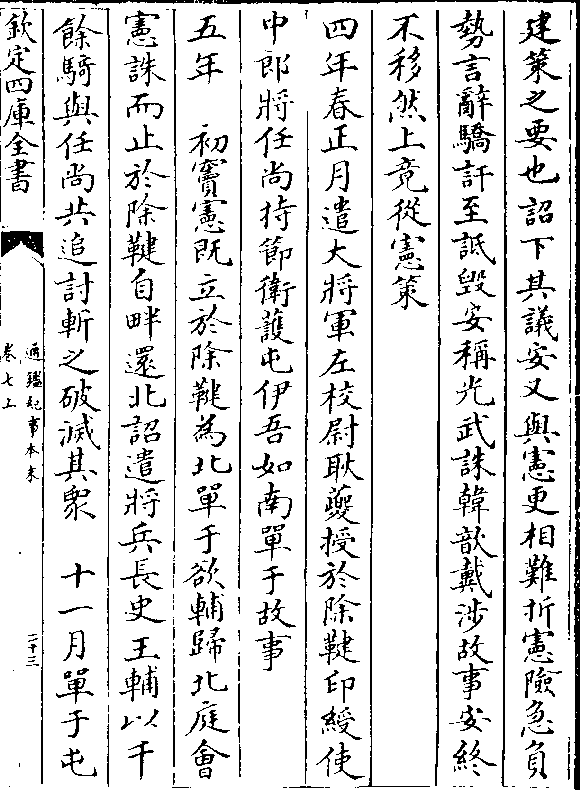 建策之要也詔下其議安又與憲更相難折憲險急負
勢言辭驕訐至詆毀安稱光武誅韓歆戴涉故事安終
不移然上竟從憲策
四年春正月遣大將軍左校尉耿夔授於除鞬印綬使
中郎將任尚持節衛護屯伊吾如南單于故事
五年　初竇憲既立於除鞬為北單于欲輔歸北庭會
憲誅而止於除鞬自畔還北詔遣將兵長史王輔以千
餘騎與任尚共追討斬之破滅其衆　十一月單于屯
欽定四庫全書
通鑑紀事本末
卷七上
二十三